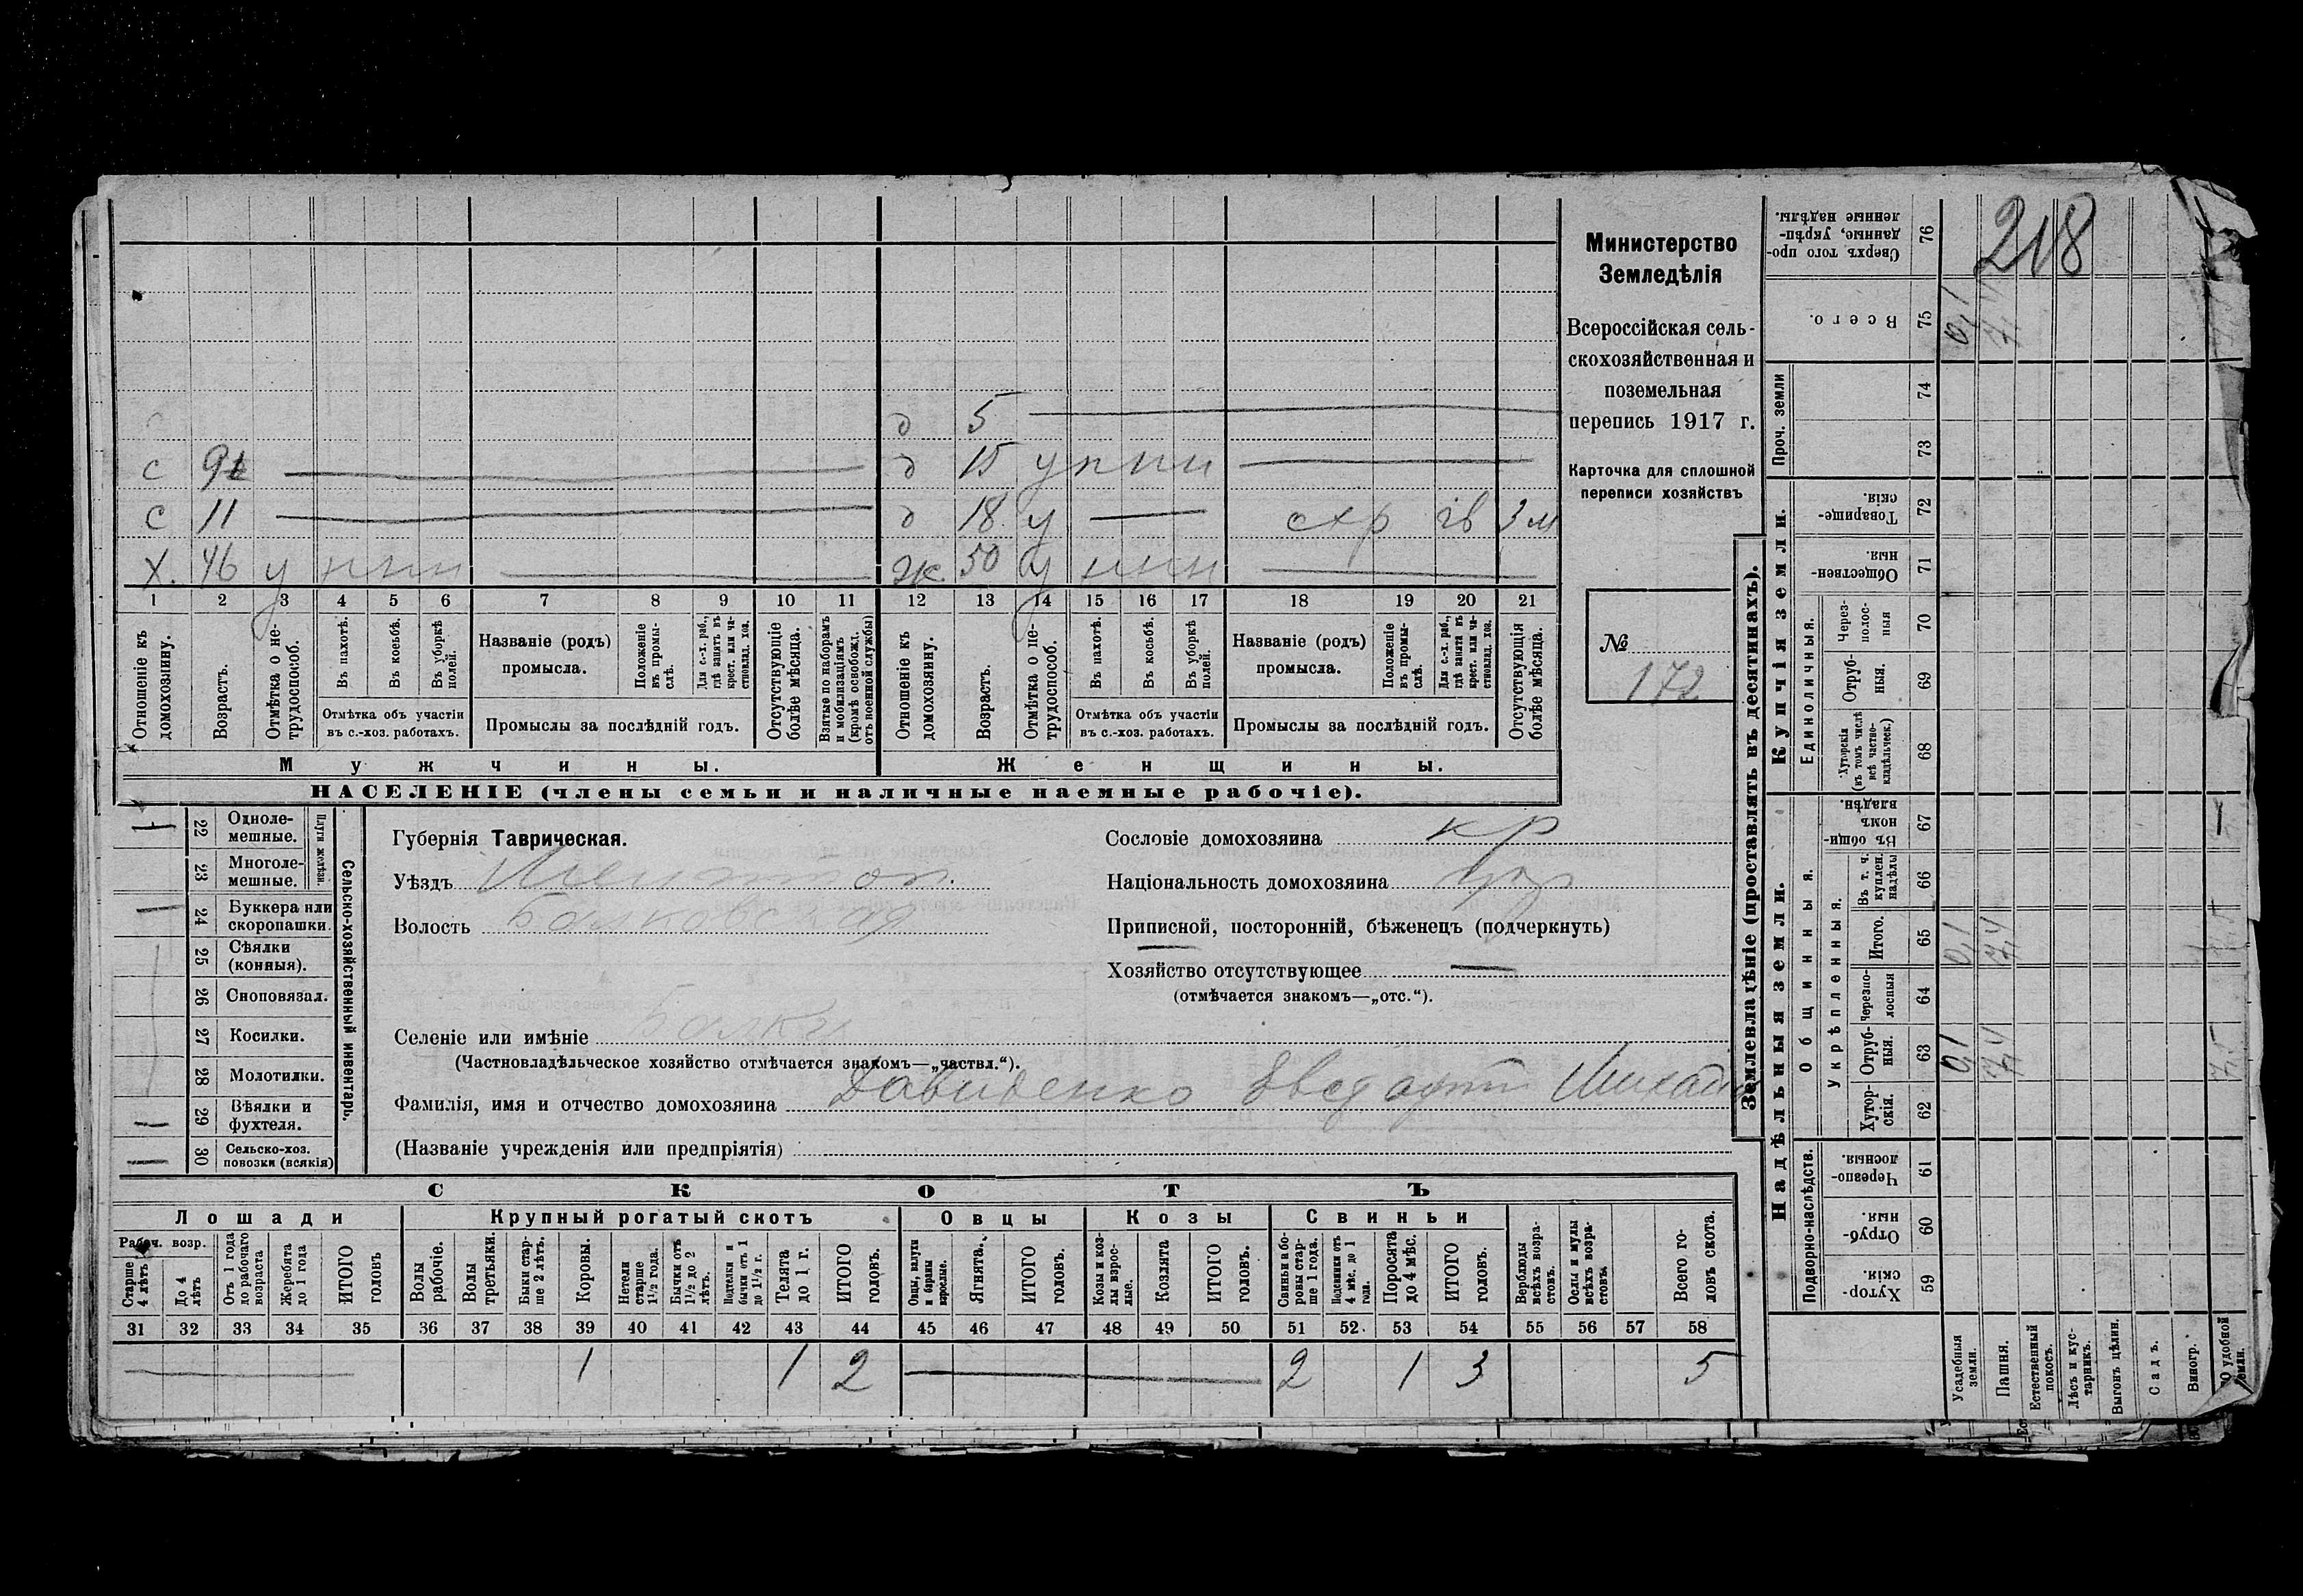 218
Министерство
Земледѣлія
Всероссійская сель-
скохозяйственная и
поземельная
перепись 1917 г.
Карточка для сплошной
переписи хозяйствъ
№
172
д 5
с 9 д 15 у п п п
с 11 д 18 у схр 3 м
х. 46 у п п п ж 50 у п п п
1 2 3 4 5 6 7 8 9 10 11 12 13 14 15 16 17 18 19 20 21
Отношеніе къ домохозяину.
Возрастъ.
Отмѣтка о не-трудоспособ.
Въ пахотѣ.
Въ косьбѣ.
Въ уборкѣ полей.
Отмѣтка объ участіи въ с.-хоз. работахъ.
Названіе (родъ) промысла.
Положеніе въ промы-слѣ.
Для с.-х. раб., гдѣ занятъ въ крест. или ча-стновлад. хоз.
Промыслы за послѣдній годъ.
Отсутствующіе болѣе мѣсяца.
Взятые по наборамъ и мобилизаціямъ (кромѣ освобожд. отъ военной службы)
Отношеніе къ домохозяину.
Возрастъ.
Отмѣтка о не-трудоспособ.
Въ пахотѣ.
Въ косьбѣ.
Въ уборкѣ полей.
Отмѣтка объ участіи въ с.-хоз. работахъ.
Названіе (родъ) промысла.
Положеніе въ промы-слѣ.
Для с.-х. раб., гдѣ занята въ крест. или ча-стновлад. хоз.
Промыслы за послѣдній годъ.
Отсутствующія болѣе мѣсяца.
Мужчины. Женщины.
НАСЕЛЕНІЕ (члены семьи и наличные наемные рабочіе).
Сельско-хозяйственный инвентарь.
Плуги желѣзн.
22 Одноле-мешные. 1
23 Многоле-мешные.
24 Буккера или скоропашки.
25 Сѣялки (конныя).
26 Сноповязал.
27 Косилки.
28 Молотилки.
29 Вѣялки и фухтеля.
30 Сельско-хоз. повозки (всякія)
Губернія Таврическая.
Уѣздъ Мелитоп.
Волость Балковская
Селеніе или имѣніе Балки
(Частновладѣльческое хозяйство отмѣчается знакомъ—„частвл.“).
Фамилія, имя и отчество домохозяина Давиденко Михайл
(Названіе учрежденія или предпріятія)
Сословіе домохозяина кр
Національность домохозяина укр
Приписной, посторонній, бѣженецъ (подчеркнуть)
Хозяйство отсутствующее —
(отмѣчается знакомъ—„отс.“).
СКОТЪ
Лошади Крупный рогатый скотъ Овцы Козы Свиньи
Рабоч. возр.
Старше 4 лѣтъ
До 4 лѣтъ
Отъ 1 года до рабочаго возраста
Жеребята до 1 года
ИТОГО головъ
Волы рабочіе.
Волы третьяки.
Быки стар-ше 2 лѣтъ.
Коровы.
Нетели старше 1½ года.
Бычки отъ 1½ до 2 лѣтъ.
Подтелки и бычки отъ 1 до 1½ г.
Телята до 1 г.
ИТОГО головъ.
Овцы, валухи и бараны взрослые.
Ягнята.
ИТОГО головъ.
Козы и коз-лы взрос-лые.
Козлята
ИТОГО головъ.
Свиньи и бо-ровы стар-ше 1 года.
Подсвинки отъ 4 мѣс. до 1 года.
Поросята до 4 мѣс.
ИТОГО головъ.
Верблюды всѣхъ возра-стовъ.
Ослы и мулы всѣхъ возра-стовъ.
Всего го-ловъ скота.
31 32 33 34 35 36 37 38 39 40 41 42 43 44 45 46 47 48 49 50 51 52 53 54 55 56 57 58
1 1 2 2 1 3 5
Землевладѣніе (проставлять въ десятинахъ).
Купчія земли.
Надѣльныя земли.
Проч. земли
Единоличныя.
Общинныя.
Укрѣпленныя.
Подворно-наслѣдств.
Сверхъ того про-данные, укрѣп-ленные надѣлы. 76
Всего. 75 0,1
74
73
Товарище-скія. 72
Обществен-ныя. 71
Через-полос-ныя 70
Отруб-ныя. 69
Хуторскія (въ томъ числѣ всѣ частно-владѣльческ.) 68
Въ общин-номъ владѣн. 67
Въ т. ч. куплен. надѣлы 66
Итого. 65 0,1 7,4
Черезпо-лосныя 64
Отруб-ныя. 63 0,1 7,4 7,5
Хутор-скія. 62
Черезпо-лосныя. 61
Отруб-ныя. 60
Хутор-скія. 59
Усадебныя земли.
Пашня.
Естественный покосъ.
Лѣсъ и кус-тарникъ.
Выгонъ цѣлин.
Садъ.
Виногр.
удобной земли.